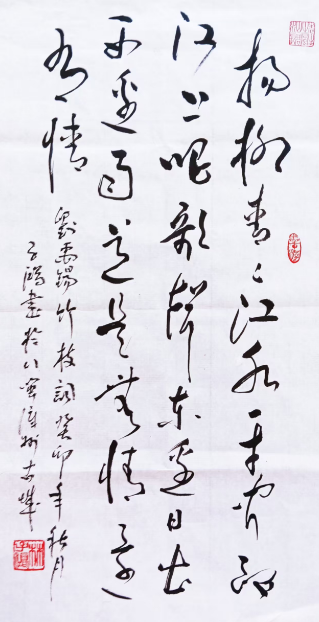 楊柳青〻江水平闻郎
江上唱歌聲东邊日出
西邊雨道是無情還
有情
劉禹錫竹枝詞癸卯年秋月
子鴻書於八閩漳州古城